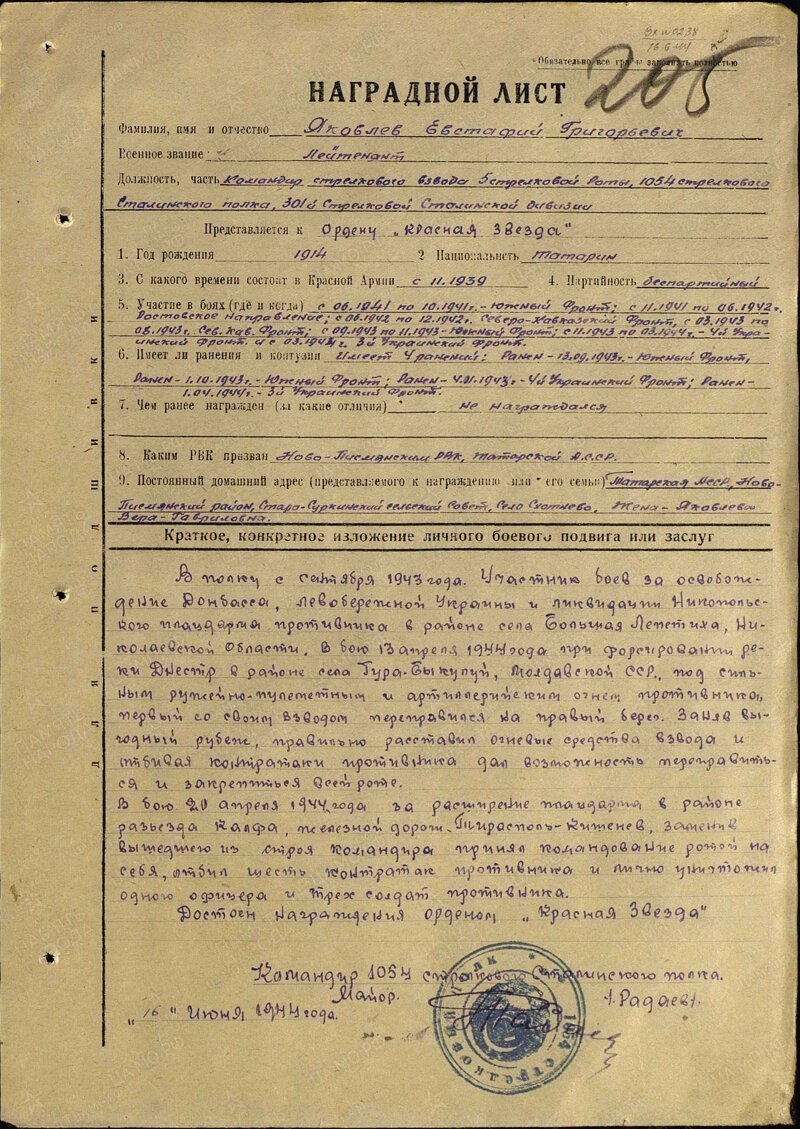 Вх №0238
16 6 44
Обязательно все графы заполнять полностью
205
НАГРАДНОЙ ЛИСТ
Фамилия, имя и отчество Яковлев Евстафий Григорьевич
Военное звание Лейтенант
Должность, часть Командир стрелкового взвода 5 стрелковой Роты, 1054 стрелкового
Сталинского полка, 301й Стрелковой Сталинской дивизии
Представляется к Ордену „Красная Звезда"
1. Год рождения 1914 2 Национальнсть Татарин
3. С какого времени состоит в Красной Армии с 11.1939 4. Партийность беспартийный
5. Участие в боях (где и когда) с 06.1941 по 10.1941г.-Южный Фронт; с 11.1941 по 06.1942г.
Ростовское Направление; с 06.1942 по 12.1942г. Северо-Кавказский Фронт, с 03.1943 по
08.1943г. Сев. Кав. Фронт; с 09.1943 по 11.1943-Южный Фронт; с 11.1943 по 03.1944г.-4й Укра-
инский Фронт. и с 03.1944г. 3й Украинский Фронт.
6. Имеет ли ранения и контузии Имеет 4 ранений: Ранен-13.09.1943г.-Южный Фронт,
Ранен-1.10.1943г.-Южный Фронт; Ранен-4.11.1943г-4й Украинский Фронт; Ранен-
1.04.1944г.-3й Украинский Фронт.
7. Чем ранее награжден (за какие отличия) не награждался
8. Каким РВК призван Ново-Писмянским РВК, Татарской А.С.С.Р.
9. Постоянный домашний адрес (представляемого к награждению или его семьи) Татарская АССР, Ново-
Писмянский район, Старо-Суркинский сельский Совет, Село Жена-Яковлева
Вера-Гавриловна.
Краткое, конкретное изложение личного боевого подвига или заслуг
В полку с сентября 1943 года. Участник боев за освобож-
дение Донбасса, левобережной Украины и ликвидации Никопольс-
кого плацдарма противника в районе села Большая Лепетиха, Ни-
колаевской Области. В бою 13 апреля 1944 года при форсировании ре-
ки Днестр в районе села Гура-Быкулуй, Молдавской ССР, под силь-
ным ружейно-пулеметным и артиллерийским огнем противника,
первый со своим взводом переправился на правый берег. Заняв вы-
годный рубеж, правильно расставил огневые средства взвода и
отбивая контратаки противника дал возможность переправить-
ся и закрепться всей роте.
В бою 20 апреля 1944 года за расширение плацдарма в районе
разъезда Калфа, железной дороги Тирасполь-Кишенев, заменив
вышедшего из строя командира принял командование ротой на
себя, отбил шесть контратак противника и лично уничтожил
одного офицера и трех солдат противника.
Достоен награждения орденом „Красная Звезда"
Командир 1054 стрелкового Сталинского полка.
Майор. /. Радаев/.
„16" Июня 1944 года.
1054 СТРЕЛКОВЫЙ ПОЛК
для подшивки